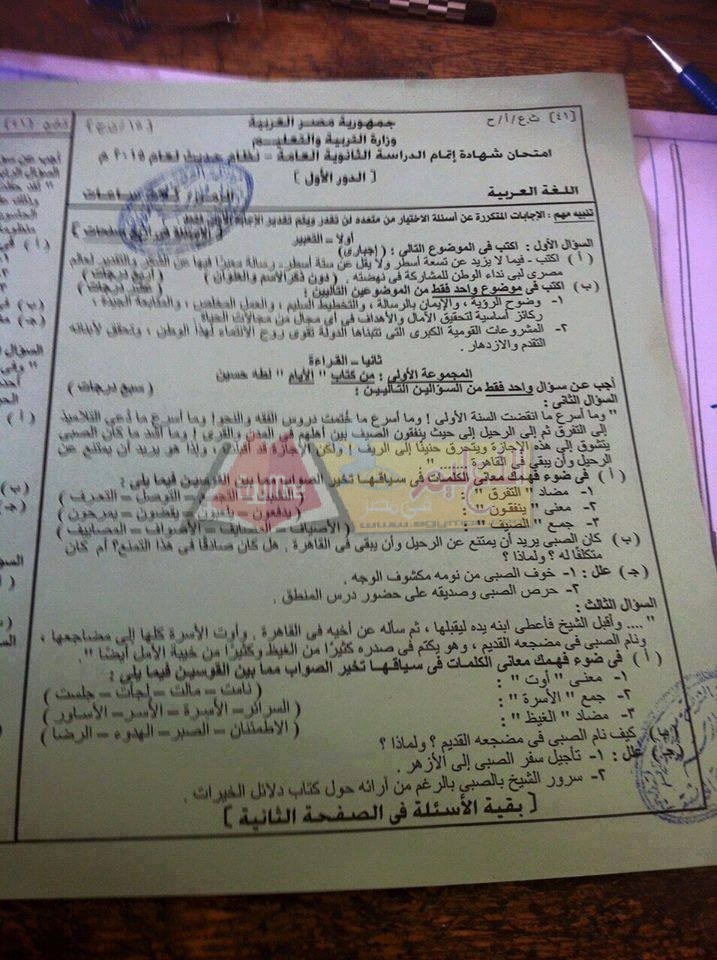 [٤١] ث.ع/أ/ح
جمهورية مصر العربية
وزارة التربية والتعليم
امتحان شهادة إتمام الدراسة الثانوية العامة – نظام حديث لعام ٢٠١٥ م
[ الدور الأول ]
اللغة العربية
الزمن : ثلاث ساعات
تنبيه مهم : الإجابات المتكررة عن أسئلة الاختيار من متعدد لن تقدر ويتم تقدير الإجابة الأولى فقط.
أولا – التعبير
( الأسئلة في أربع صفحات )
السؤال الأول : اكتب فى الموضوع التالى : (إجبارى)
( أ ) اكتب – فيما لا يزيد عن تسعة أسطر ولا يقل عن ستة أسطر – رسالة معبرًا فيها عن الشكر والتقدير لعالم
مصرى لبى نداء الوطن للمشاركة فى نهضته . (دون ذكر الاسم والعنوان ) ( أربع درجات )
(ب) اكتب فى موضوع واحد فقط من الموضوعين التاليين : ( عشر درجات )
١- وضوح الرؤية ، والإيمان بالرسالة ، والتخطيط السليم ، والعمل المخلص ، والمتابعة الجيدة ؛
ركائز أساسية لتحقيق الآمال والأهداف فى أى مجال من مجالات الحياة .
٢- المشروعات القومية الكبرى التى تتبناها الدولة تقوى روح الانتماء لهذا الوطن ، وتحقق لأبنائه
التقدم والازدهار .
ثانيا – القراءة
المجموعة الأولى : من كتاب " الأيام " لطه حسين
أجب عن سؤال واحد فقط من السؤالين التاليين : ( سبع درجات )
السؤال الثانى :
" وما أسرع ما انقضت السنة الأولى ! وما أسرع ما خُتمت دروس الفقه والنحو! وما أسرع ما دُعى التلاميذ
إلى التفرق ثم إلى الرحيل إلى حيث ينفقون الصيف بين أهلهم والقرى ! وما أشد ما كان الصبى
يتشوق إلى هذه الإجازة ويتحرق حنينًا إلى الريف ! ولكن الإجازة قد أقبلت ، وإذا هو يريد أن يمتنع عن
الرحيل وأن يبقى فى القاهرة
( أ ) فى ضوء فهمك معانى الكلمات فى سياقها تخير الصواب مما بين القوسين فيما يلى :
١- مضاد " التفرق " : التوصل – التعرف )
٢- معنى " ينفقون " : ( يدفعون – يقضون – يمرحون )
٣- جمع " الصيف " : ( الأصياف – المصايف – الأصواف – المصاييف )
(ب) كان الصبى يريد أن يمتنع عن الرحيل وأن يبقى فى القاهرة . هل كان صادقًا فى هذا التمنع؟ أم كان
متكلفًا له ؟ ولماذا ؟
(جـ) علل : ١- خوف الصبى من نومه مكشوف الوجه .
٢- حرص الصبى وصديقه على حضور درس المنطق .
السؤال الثالث :
" .... وأقبل الشيخ فأعطى ابنه يده ليقبلها ، ثم سأله عن أخيه فى القاهرة . وأوت الأسرة كلها إلى مضاجعها ،
ونام الصبى فى مضجعه القديم ، وهو يكتم فى صدره كثيرًا من الغيظ وكثيرًا من خيبة الأمل أيضًا " .
( أ ) فى ضوء فهمك معانى الكلمات فى سياقها تخير الصواب مما بين القوسين فيما يلى :
١- معنى " أوت " : ( نامت – مالت – لجأت – جلست )
٢- جمع " الأسرة " : ( السرائر – الأسرة – الأسر – الأساور )
٣- مضاد " الغيظ " : ( الاطمئنان – الصبر – الهدوء – الرضا )
(ب) كيف نام الصبى فى مضجعه القديم ؟ ولماذا ؟
(جـ) علل : ١- تأجيل سفر الصبى إلى الأزهر .
٢- سرور الشيخ بالصبى بالرغم من آرائه حول كتاب دلائل الخيرات .
[ بقية الأسئلة فى الصفحة الثانية ]